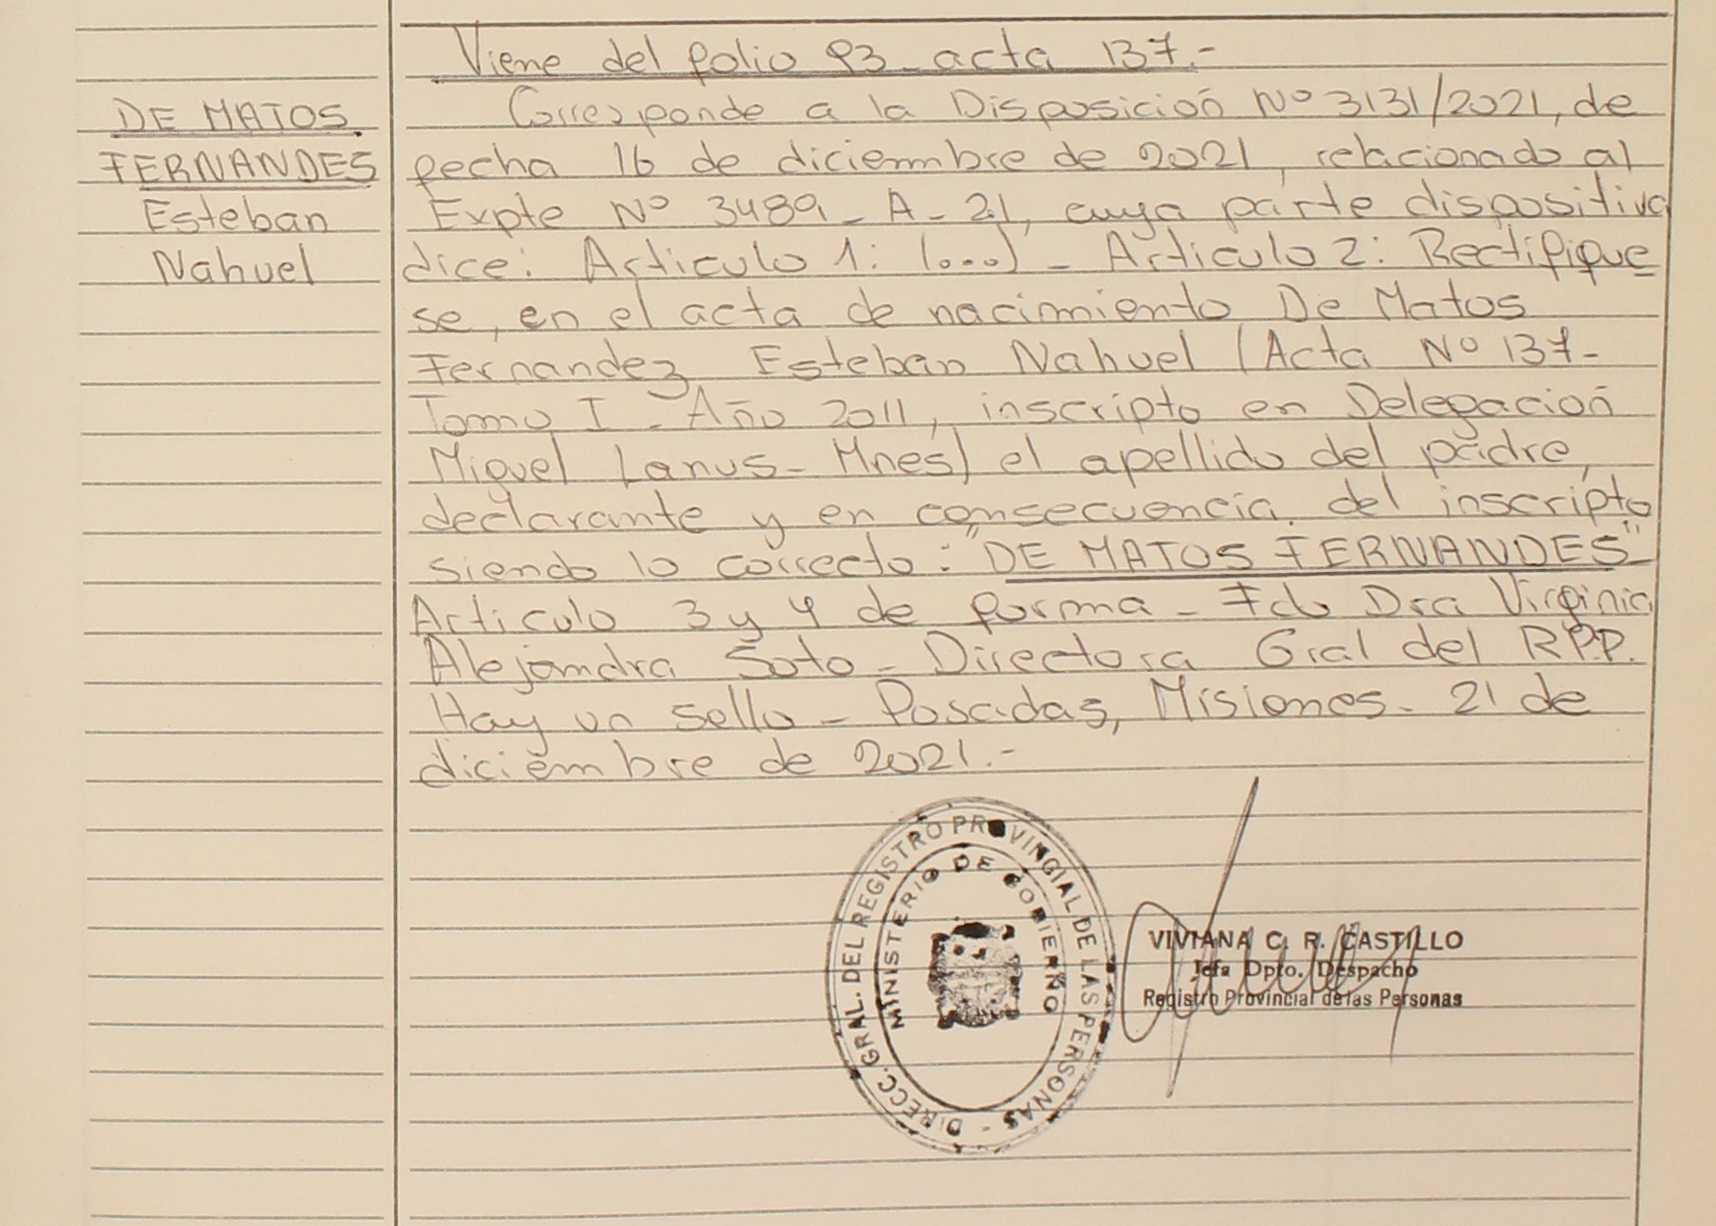 Viene del folio 93 - acta 137.-
DE MATOS
FERNANDES
Esteban
Nahuel
Corresponde a la Disposición Nº 3131/2021, de
fecha 16 de diciembre de 2021, relacionado al
Expte Nº 3489 - A - 21, cuya parte dispositiva
dice: Articulo 1: (...) - Articulo 2: Rectifique
se, en el acta de nacimiento De Matos
Fernandez Esteban Nahuel (Acta Nº 137-
Tomo I - Año 2011, inscripto en Delegación
Miguel Lanus - Mnes) el apellido del padre,
declarante y en consecuencia del inscripto
siendo lo correcto: "DE MATOS FERNANDES"
Articulo 3 y 4 de forma - Fdo Dra Virginia
Alejandra Soto - Directora Gral del RPP.
Hay un sello - Posadas, Misiones. 21 de
diciembre de 2021.-
DIRECC. GRAL. DEL REGISTRO PROVINCIAL DE LAS PERSONAS -
MINISTERIO DE GOBIERNO
VIVIANA C. R. CASTILLO
Jefa Dpto. Despacho
Registro Provincial de las Personas